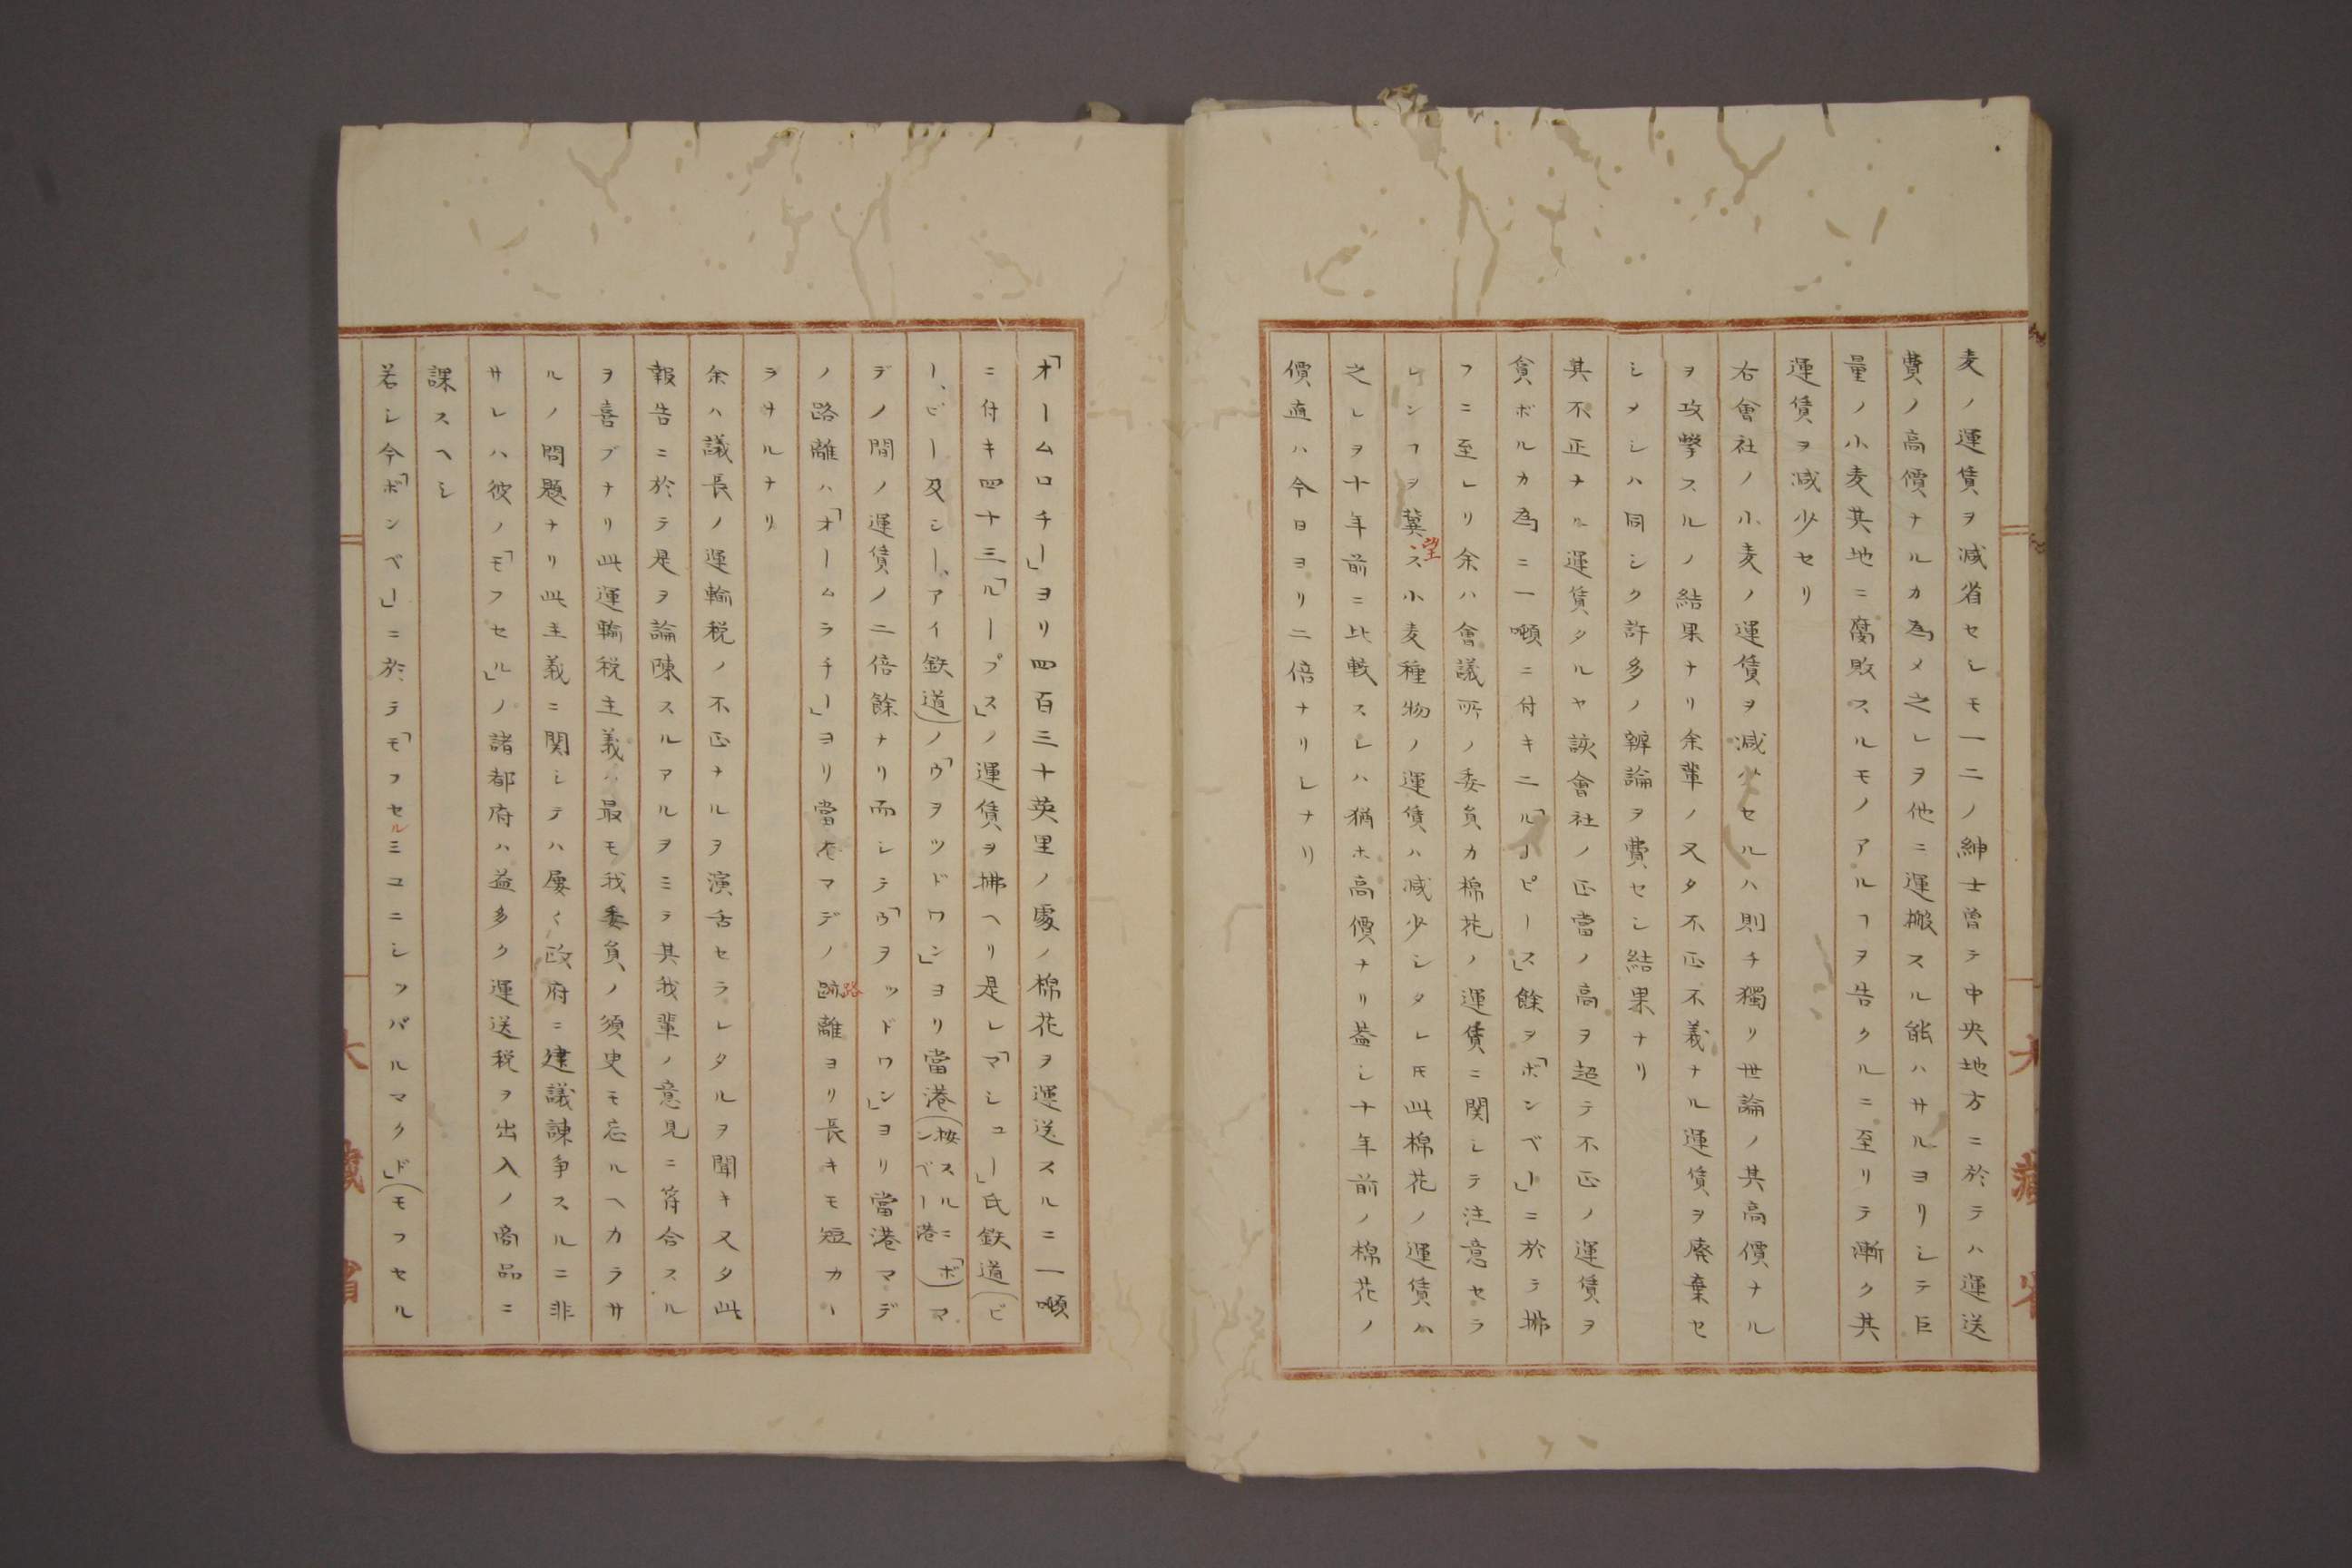 麦ノ運賃ヲ减省セシモ一二ノ紳士曽テ中央地方ニ於テハ運送
費ノ高價ナルカ為メ之レヲ他ニ運搬スル能ハサルヨリシテ巨
量ノ小麦其地ニ腐敗スルモノアルヿヲ告クルニ至リテ漸ク其
運賃ヲ减少セリ
右會社ノ小麦ノ運賃ヲ减少セルハ則チ獨リ世論ノ其高價ナル
ヲ攻撃スルノ結果ナリ余輩ノ又タ不正不義ナル運賃ヲ廃棄セ
シメシハ同シク許多ノ辨論ヲ費セシ結果ナリ
其不正ナル運賃タルヤ該會社ノ正當ノ高ヲ超テ不正ノ運賃ヲ
貪ボルカ為ニ一噸ニ付キ二「ルーピース」餘ヲ「ボンベー」ニ於テ拂
フニ至レリ余ハ會議所ノ委員カ棉花ノ運賃ニ関シテ注意セラ
レンヿヲ冀望ス小麦種物ノ運賃ハ减少シタレ𪜈此棉花ノ運賃ハ
之レヲ十年前ニ比較スレハ猶ホ高價ナリ蓋シ十年前ノ棉花ノ
價直ハ今日ヨリ二倍ナリレナリ
大藏省
「オームロチー」ヨリ四百三十英里ノ處ノ棉花ヲ運送スルニ一噸
ニ付キ四十三「ループス」ノ運賃ヲ拂ヘリ是レ「マシュー」氏鉄道(ビ
ー、ビー及シー、アイ鉄道)ノ「ウヲツドワン」ヨリ當港(按スルニ「ボンベー港)マ
デノ間ノ運賃ノ二倍餘ナリ而シテ「ウヲツドワン」ヨリ當港マデ
ノ路離ハ「オームラチー」ヨリ當港マデノ路離ヨリ長キモ短カー
ヲサルナリ
余ハ議長ノ運輸税ノ不正ナルヲ演舌セラレタルヲ聞キ又タ此
報告ニ於テ是ヲ論陳スルアルヲミテ其我輩ノ意見ニ符合スル
ヲ喜ブナリ此運輸税主義ハ最モ我委員ノ須史モ忘ルヘカラサ
ルノ問題ナリ此主義ニ関シテハ屡く政府ニ建議諫争スルニ非
サレハ彼ノ「モフセル」ノ諸都府ハ益多ク運送税ヲ出入ノ商品ニ
課スヘシ
若シ今「ボンベー」ニ於テ「モフセルミユニシッパルマクド」(モフセル
大藏省